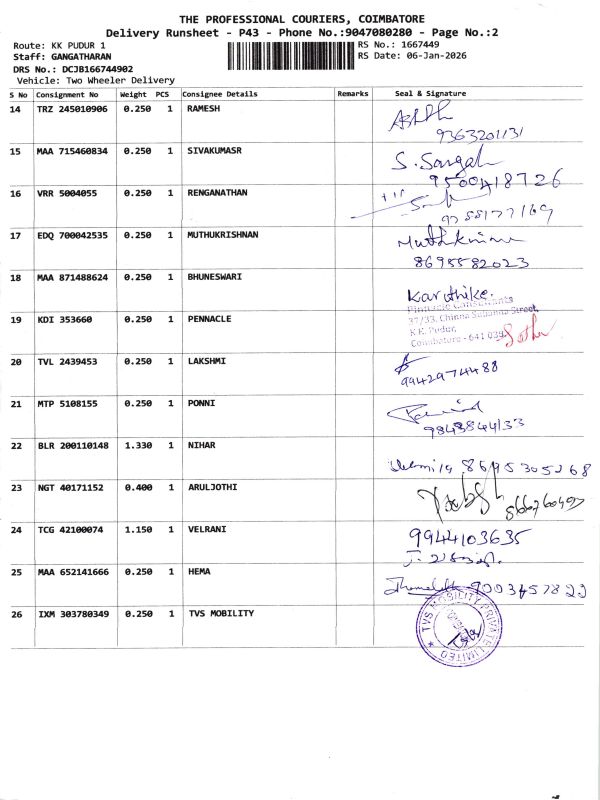 THE PROFESSIONAL COURIERS, COIMBATORE
Delivery Runsheet - P43 - Phone No.:9047080280 - Page No.:2
Route: KK PUDUR 1
Staff: GANGATHARAN
DRS No.: DCJB166744902
Vehicle: Two Wheeler Delivery
RS No.: 1667449
RS Date: 06-Jan-2026
S No Consignment No Weight PCS Consignee Details Remarks Seal & Signature
14 TRZ 245010906 0.250 1 RAMESH
9363201131
15 MAA 715460834 0.250 1 SIVAKUMASR S. Sangah
9500418726
16 VRR 5004055 0.250 1 RENGANATHAN
9788177169
17 EDQ 700042535 0.250 1 MUTHUKRISHNAN
8695582023
18 MAA 871488624 0.250 1 BHUNESWARI Karthike.
19 KDI 353660 0.250 1 PENNACLE
Pinnacle Consultants
37/33, Chinna Subanna Street,
K.K. Pudur,
Coimbatore - 641 038
20 TVL 2439453 0.250 1 LAKSHMI
9942974488
21 MTP 5108155 0.250 1 PONNI
9843844133
22 BLR 200110148 1.330 1 NIHAR 8695305268
23 NGT 40171152 0.400 1 ARULJOTHI
24 TCG 42100074 1.150 1 VELRANI 9944103635
25 MAA 652141666 0.250 1 HEMA
26 IXM 303780349 0.250 1 TVS MOBILITY
TVS MOBILITY PRIVATE LIMITED